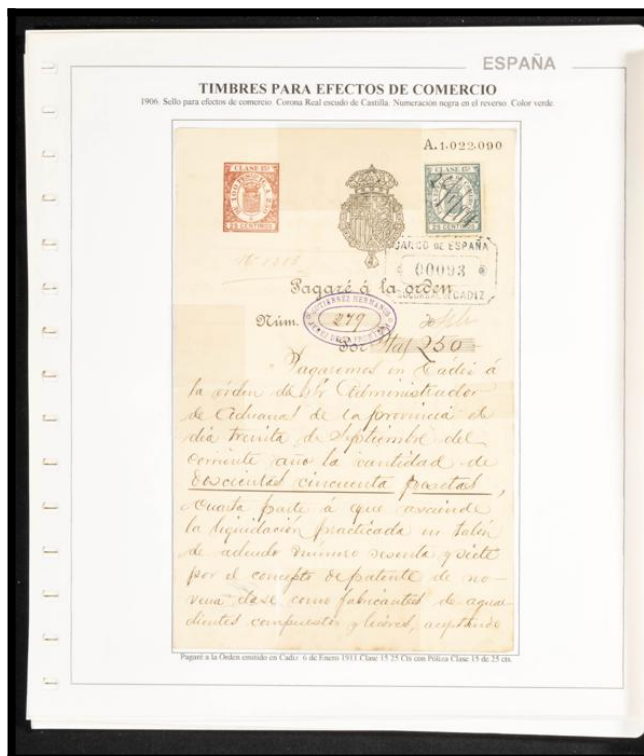 ESPAÑA
TIMBRES PARA EFECTOS DE COMERCIO
1906. Sello para efectos de comercio. Corona Real escudo de Castilla. Numeración negra en el reverso. Color verde.
A.1.022.090
CLASE 15ª
25 CENTIMOS
CLASE 15ª
25 CENTIMOS
BANCO DE ESPAÑA
00093
SUCURSAL DE CADIZ
Pagaré á la orden
GUTIERREZ HERMANOS
Núm. 279
Por Ptas 250
Pagaremos en Cádiz á
la orden del Sr Administrador
de Aduanas de la provincia el
dia treinta de Septiembre del
corriente año la cantidad de
doscientas cincuenta pesetas,
cuarta parte á que asciende
la liquidación practicada en talón
de adeudo número sesenta y siete
por el concepto de patente de no-
vena clase como fabricantes de aguar
dientes compuestos y licores, aceptando
Pagaré a la Orden emitido en Cadiz 6 de Enero 1911 Clase 15 25 Cts con Póliza Clase 15 de 25 cts.